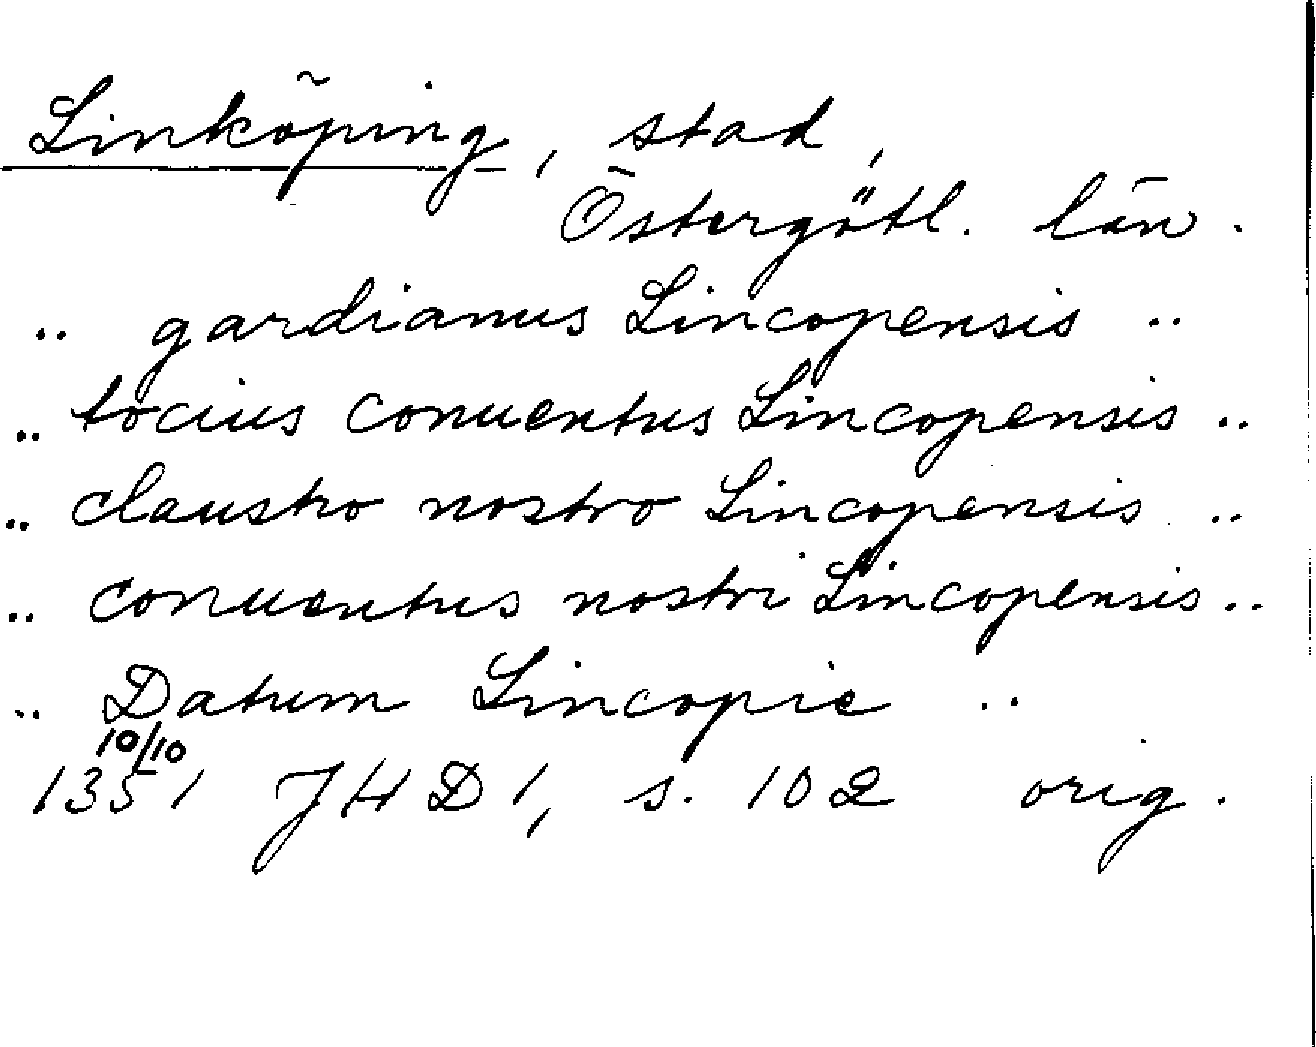 Linköping, stad,
Östergötl. län.
.. gardianus Lincopensis ..
.. tocius conuentus Lincopensis ..
.. claustro nostro Lincopensis ..
.. conuentus nostri Lincopensis ..
.. Datum Lincopie ..
10/10
1351 JHD 1, s. 102 orig.